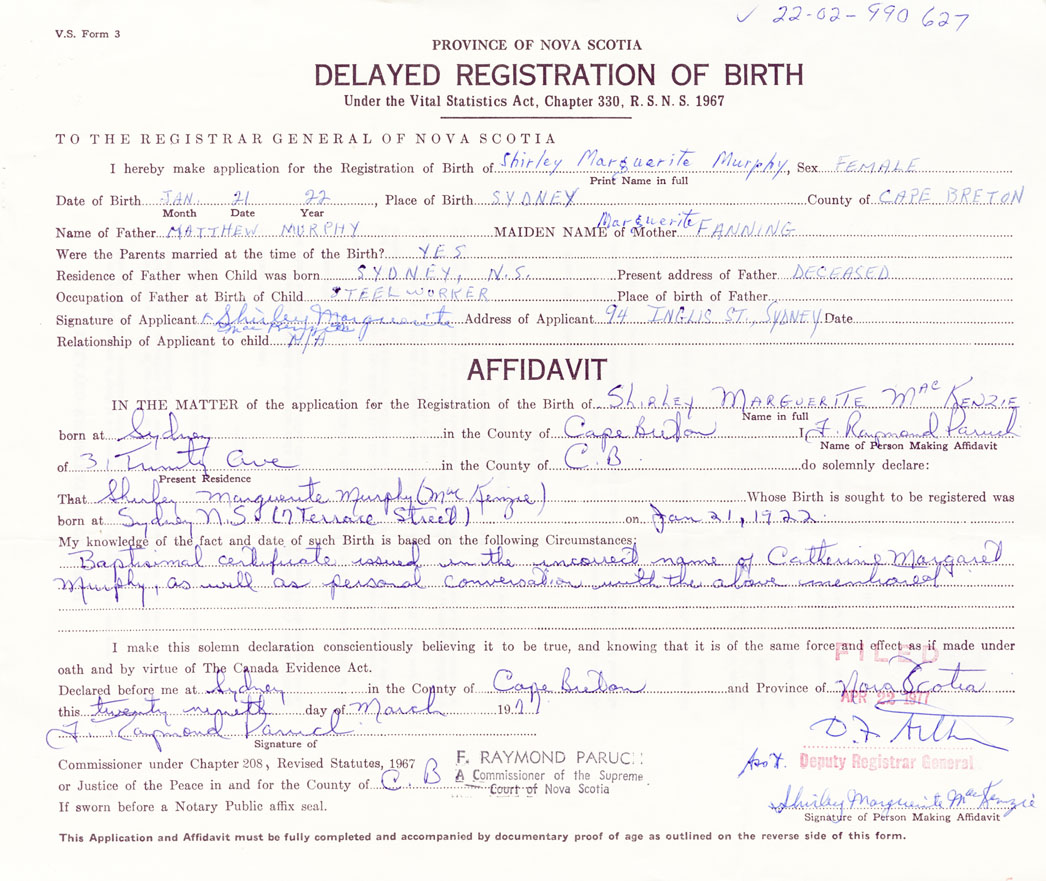 ✓ 22-02-990 627
V.S. Form 3
PROVINCE OF NOVA SCOTIA
DELAYED REGISTRATION OF BIRTH
Under the Vital Statistics Act, Chapter 330, R. S. N. S. 1967
TO THE REGISTRAR GENERAL OF NOVA SCOTIA
I hereby make application for the Registration of Birth of Shirley Marguerite Murphy, Sex FEMALE
Print Name in full
Date of Birth JAN. 21 22, Place of Birth SYDNEY County of CAPE BRETON
Month Date Year
Name of Father MATTHEW MURPHY MAIDEN NAME of Mother Marguerite FANNING
Were the Parents married at the time of the Birth? YES
Residence of Father when Child was born SYDNEY, N.S. Present address of Father DECEASED
Occupation of Father at Birth of Child STEELWORKER Place of birth of Father
Signature of Applicant Shirley Marguerite Address of Applicant 94 INGLIS ST., SYDNEY Date
Relationship of Applicant to child N/A
AFFIDAVIT
IN THE MATTER of the application for the Registration of the Birth of SHIRLEY MARGUERITE MacKENZIE
Name in full
born at Sydney in the County of Cape Breton I F. Raymond Paruch
Name of Person Making Affidavit
of 31 Trinity Ave in the County of C.B do solemnly declare:
Present Residence
That Shirley Marguerite Murphy (MacKenzie) Whose Birth is sought to be registered was
born at Sydney N.S. (7 Terrace Street) on Jan 21, 1922
My knowledge of the fact and date of such Birth is based on the following Circumstances:
Baptismal certificate issued in the incorrect name of Catherine Margaret
Murphy, as well as personal conversation with the above mentioned
I make this solemn declaration conscientiously believing it to be true, and knowing that it is of the same force and effect as if made under
FILED
oath and by virtue of The Canada Evidence Act.
Declared before me at Sydney in the County of Cape Breton and Province of Nova Scotia
APR 22 1977
this twenty nineth day of March 1977
F. Raymond Paruch
Signature of
Commissioner under Chapter 208, Revised Statutes, 1967
or Justice of the Peace in and for the County of C. B
If sworn before a Notary Public affix seal.
F. RAYMOND PARUCH
A Commissioner of the Supreme
Court of Nova Scotia
Deputy Registrar General
Shirley Marguerite MacKenzie
Signature of Person Making Affidavit
This Application and Affidavit must be fully completed and accompanied by documentary proof of age as outlined on the reverse side of this form.